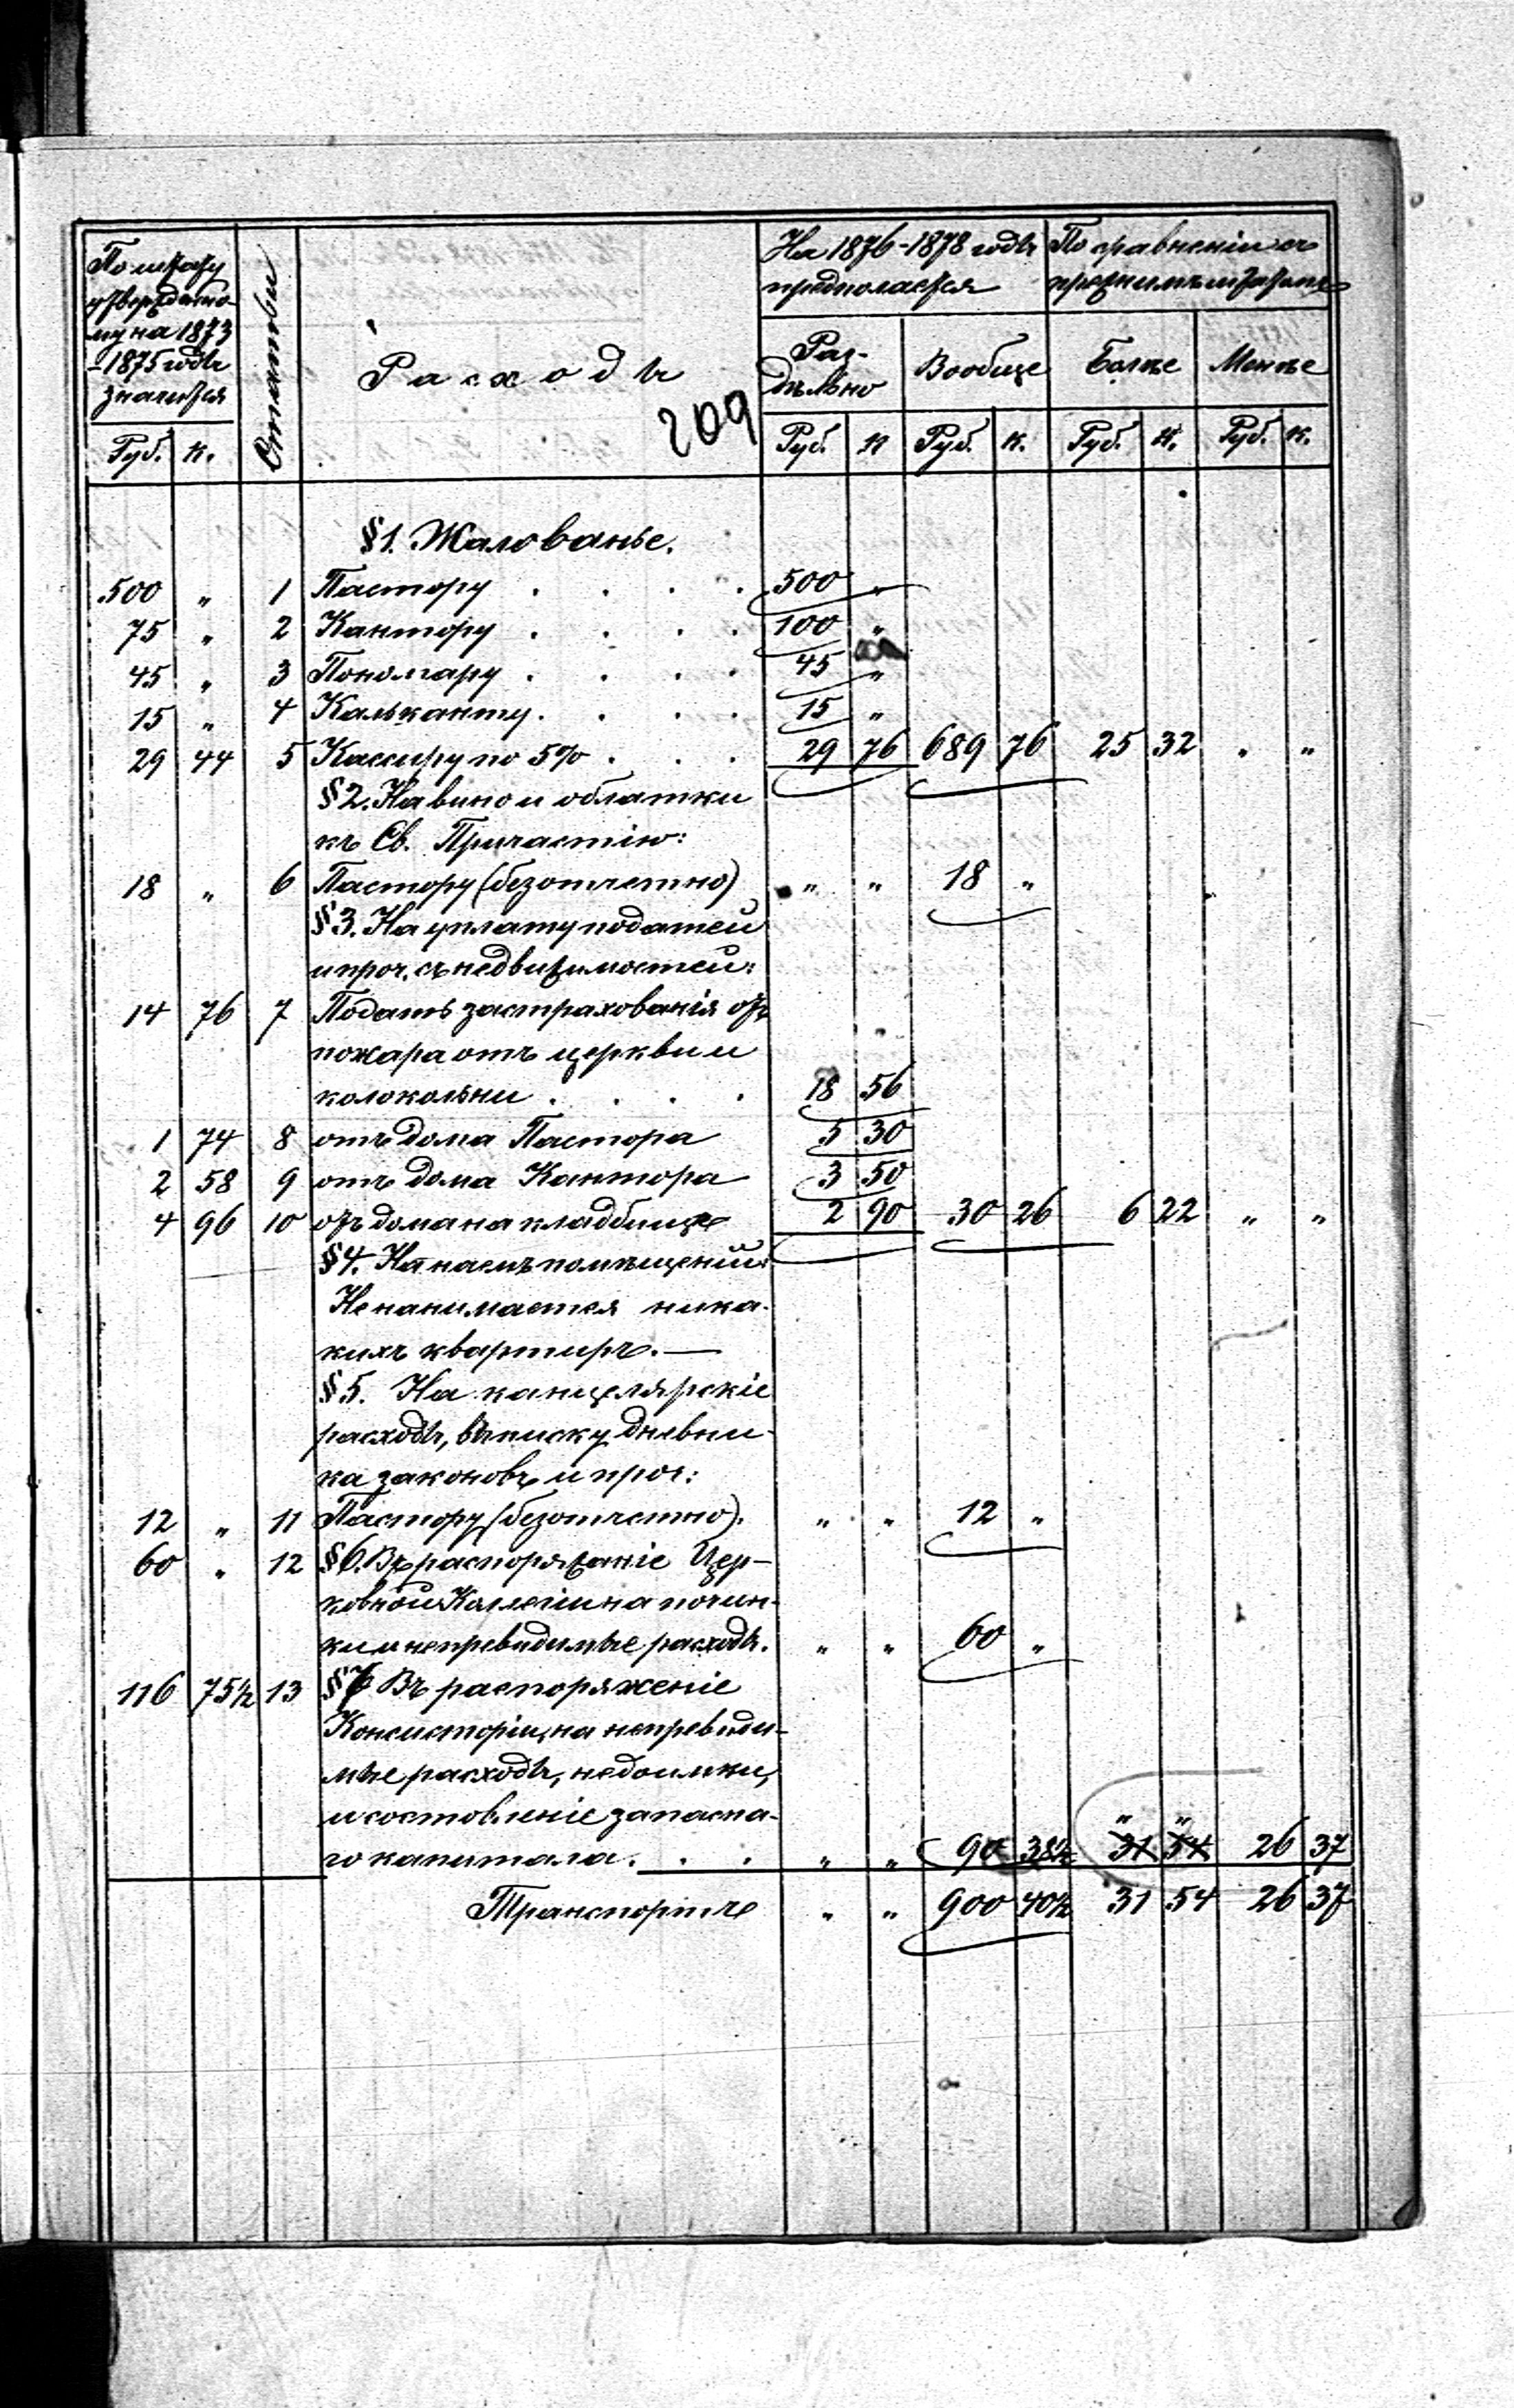 По штату
утвержденно-
му на 1873
-1875 годы
значится
Руб. к.
Статьи
Расходы
209
На 1876-1878 годы
предполагается
Раз-
дѣльно
Вообще
Руб. к Руб. к.
По сравненію съ
прежнимъ штатомъ
Болѣе Менѣе
Руб. к. Руб. к.
§1. Жалованье.
500 „ 1 Пастору . . . . 500 „
75 „ 2 Кантору . . . . 100 „
45 „ 3 Пономарю . . . . 45 „
15 „ 4 Кальканту . . . . 15 „
29 44 5 Кассиру по 5% . . . 29 76 689 76 25 32 „ „
§2. На вино и облатки
къ Св. Причастію:
18 „ 6 Пастору (безотчетно) „ „ 18 „
§3. На уплату податей
и проч. съ недвижимостей:
14 76 7 Подать застрахованія отъ
пожара отъ церкви и
колокольни . . . . 18 56
1 74 8 отъ дома Пастора 5 30
2 58 9 отъ дома Кантора 3 50
4 96 10 отъ дома на кладбище 2 90 30 26 6 22 „ „
§4. На наемъ помѣщеній:
Не нанимается ника-
кихъ квартиръ. —
§5. На канцелярскіе
расходы, выписку дневни-
ка законовъ и проч:
12 „ 11 Пастору (безотчетно). „ „ 12 „
60 „ 12 §6. Въ распоряженіе Цер-
ковной Коллегіи на почин-
ки и непревидимые расходы. „ „ 60 „
116 75½ 13 §7 Въ распоряженіе
Консисторіи, на непревиди-
мые расходы, недоимки,
и состовленіе запасна-
го капитала. . . „ „ 90 38½ „ „ 31 54 26 37
Транспортъ „ „ 900 40½ 31 54 26 37